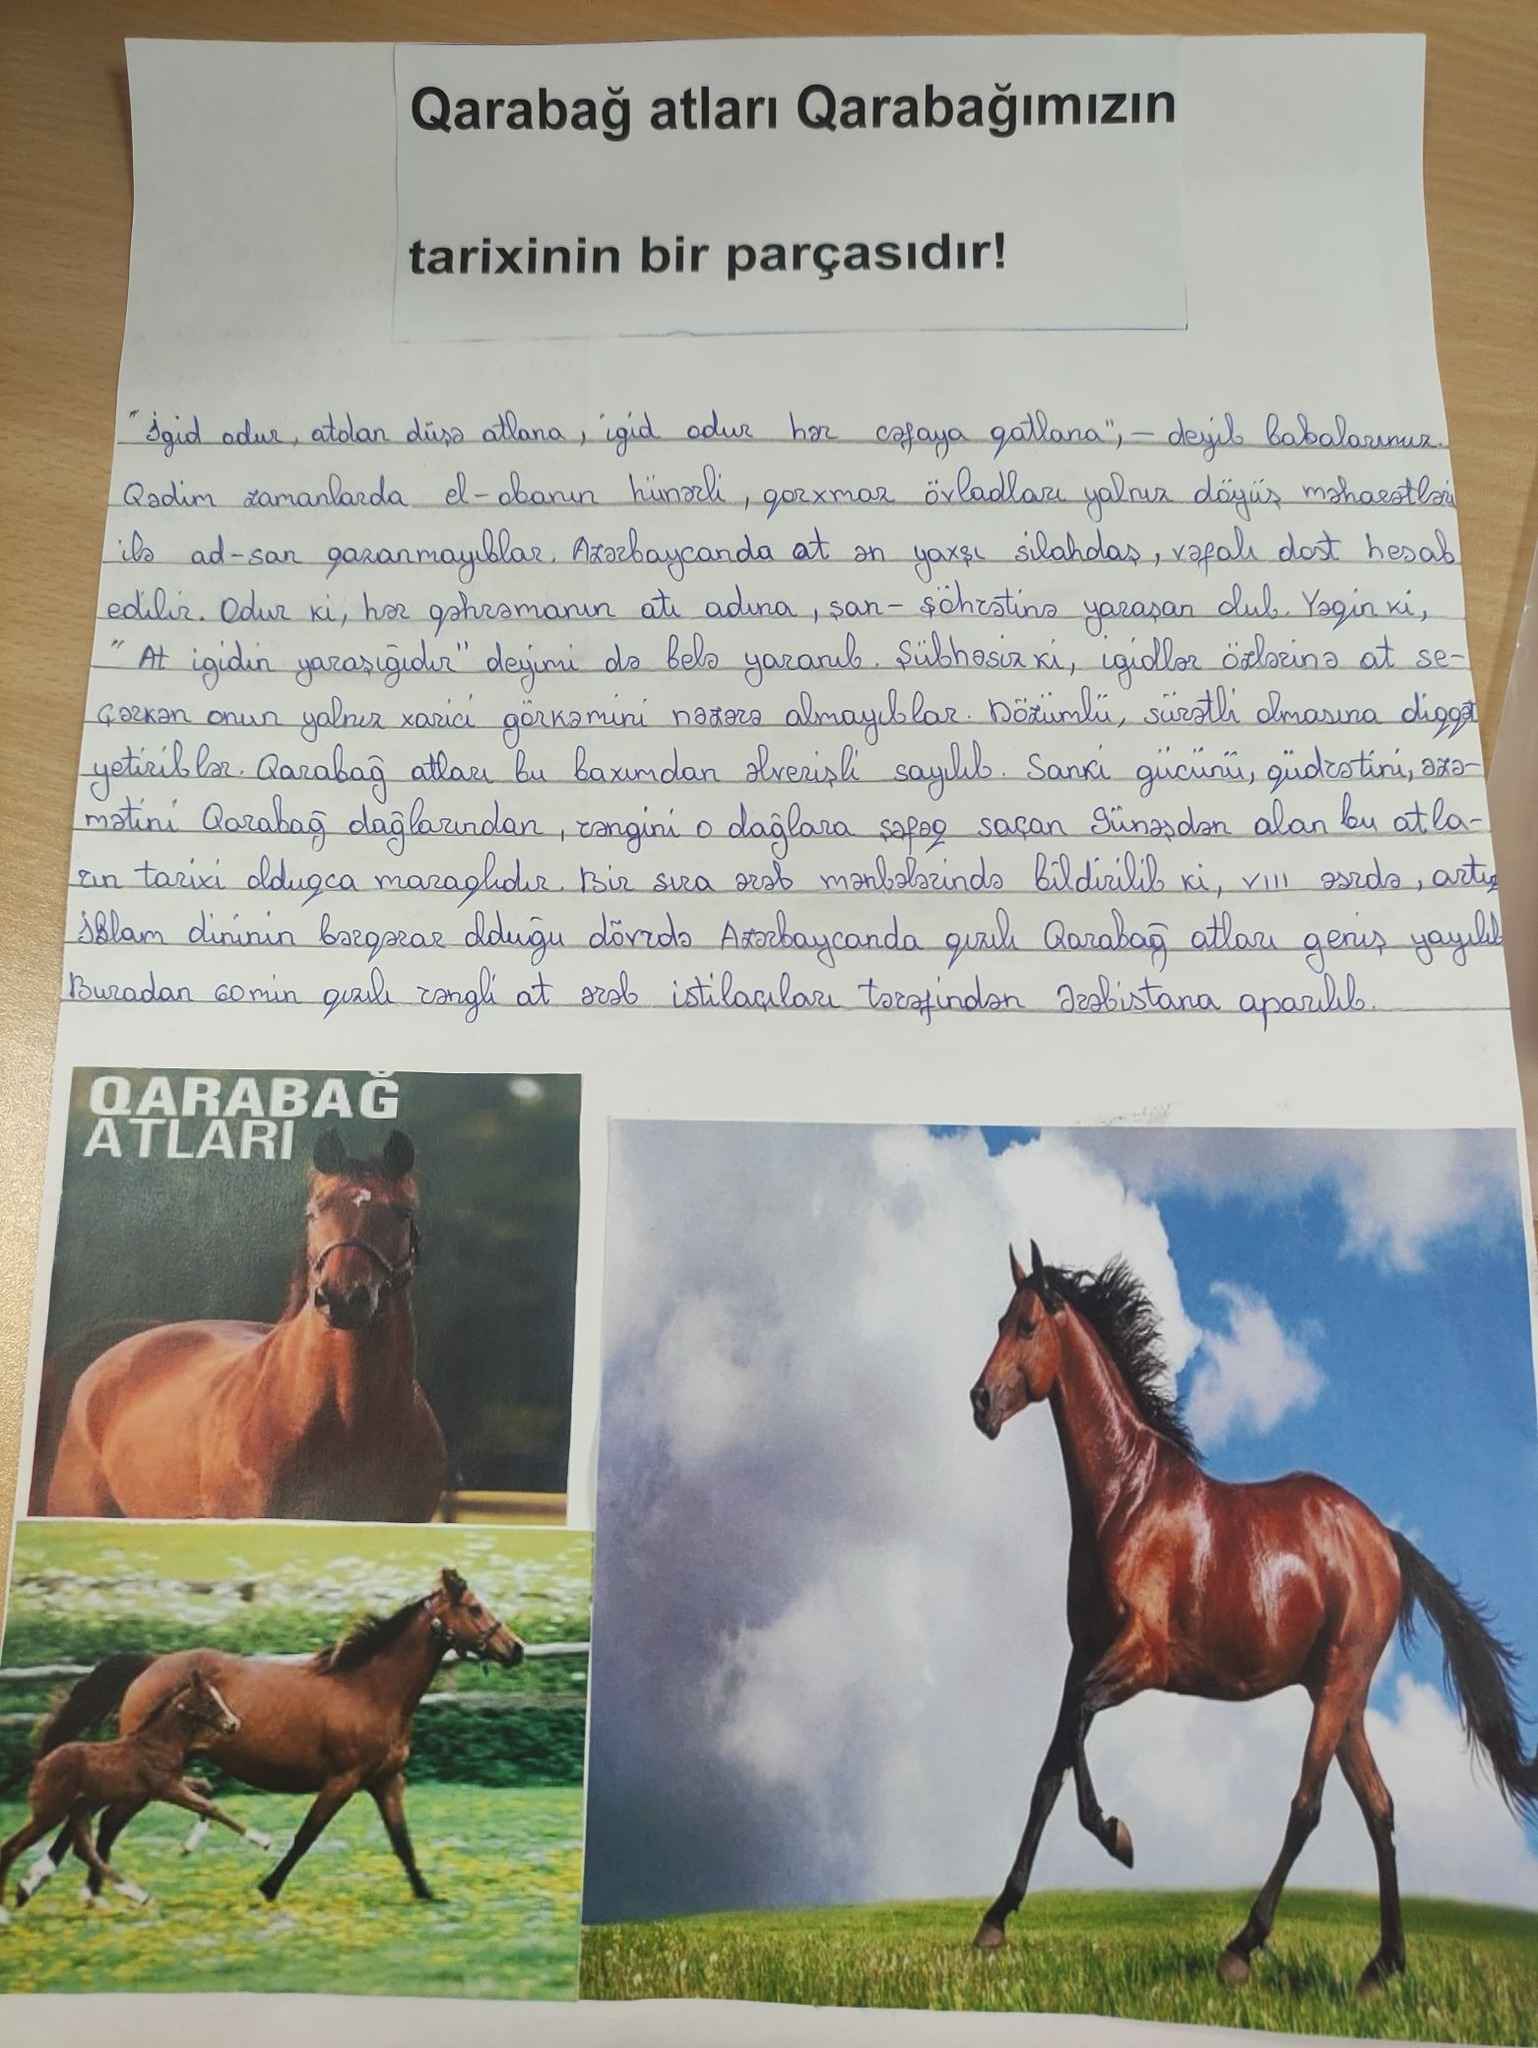 Qarabağ atları Qarabağımızın
tarixinin bir parçasıdır!
"İgid odur, atdan düşə atlana, igid odur hər cəfaya qatlana", – deyib babalarımız.
Qədim zamanlarda el-obanın hünərli, qorxmaz övladları yalnız döyüş məharətləri
ilə ad-san qazanmayıblar. Azərbaycanda at ən yaxşı silahdaş, vəfalı dost hesab
edilir. Odur ki, hər qəhrəmanın atı adına, şan-şöhrətinə yaraşan olub. Yəqin ki,
"At igidin yaraşığıdır" deyimi də belə yaranıb. Şübhəsiz ki, igidlər özlərinə at se-
çərkən onun yalnız xarici görkəmini nəzərə almayıblar. Dözümlü, sürətli olmasına diqqət
yetiriblər. Qarabağ atları bu baxımdan əlverişli sayılıb. Sanki gücünü, qüdrətini, əzə-
mətini Qarabağ dağlarından, rəngini o dağlara şəfəq saçan Günəşdən alan bu atla-
rın tarixi olduqca maraqlıdır. Bir sıra ərəb mənbələrində bildirilib ki, VIII əsrdə, artıq
İslam dininin bərqərar olduğu dövrdə Azərbaycanda qızılı Qarabağ atları geniş yayılıb
Buradan 60 min qızılı rəngli at ərəb istilaçıları tərəfindən Ərəbistana aparılıb.
QARABAĞ
ATLARI